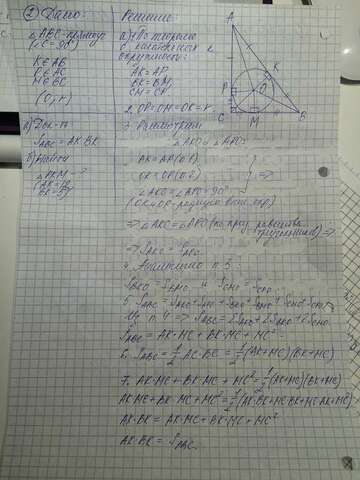 ② Дано:
△ABC-прямоуг
(∠C=90°)
K∈AB
P∈AC
M∈BC
(O, r)
а) Док-ть
S_ABC = AK·BK
б) Найти
△PKM - ?
Решение:
а) 1. По теореме
о касательных к
окружности:
AK=AP,
BK=BM,
CM=CP.
2. OP=OM=OK=r
3. Рассмотрим
△AKO и △APO:
OK=OP
∠AKO=∠APO=90°
(OK и OP-радиусы
⇒ △AKO=△APO (по приз. равенства треугольников) ⇒
⇒ S_AKO = S_APO
4. Аналогично п. 3:
S_BKO = S_BMO и S_CMO = S_CPO
5. S_ABC = S_AKO + S_APO + S_BKO + S_BMO + S_CMO + S_CPO
Из п. 4 ⇒ S_ABC = 2S_AKO + 2S_BKO + 2S_CMO
S_ABC = AK·MC + BK·MC + MC²
6. S_ABC = 1/2 AC·BC = 1/2 (AK+MC)(BK+MC)
7. AK·MC + BK·MC + MC² = 1/2 (AK+MC)(BK+MC)
AK·MC + BK·MC + MC² = 1/2 (AK·BK + MC·BK + MC·AK + MC²)
AK·BK = AK·MC + BK·MC + MC²
AK·BK = S_ABC
A
K
P
O
C
M
B